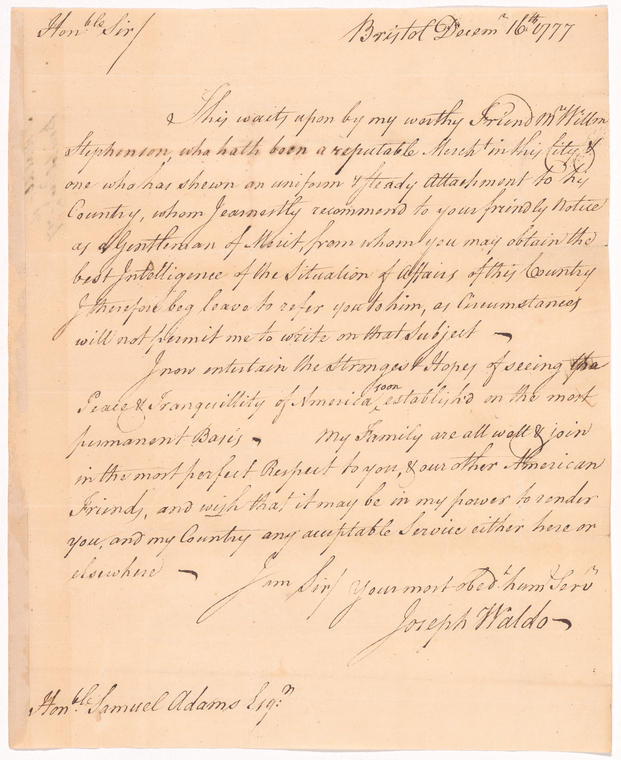 Honble Sir/ Bristol Decemr 16th 1777
This waits upon by my worthy Friend Mr Willm
Stephenson, who hath been a reputable Mercht in this City, &
one who has shewn an uniform & steady Attachment to his
Country, whom I earnestly recommend to your friendly Notice
as a Gentleman of Merit, from whom you may obtain the
best Intelligence of the Situation of Affairs of this Country
I therefore beg leave to refer you to him, as Circumstances
will not permit me to write on that Subject —
I now entertain the strongest Hopes of seeing the
Peace & Tranquillity of America soon establish'd on the most
permanent Basis — My Family are all well & join
in the most perfect Respect to you, & our other American
Friends, and wish that it may be in my power to render
you, and my Country any acceptable Service either here or
elsewhere — I am Sir/ Your most obedt humle Servt
Joseph Waldo —
Honble Samuel Adams Esqr